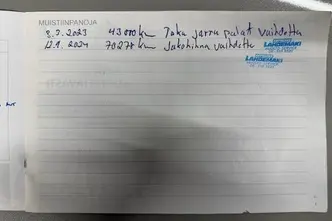 MUISTIINPANOJA
8.2.2023 43000 km Taka jarru palat vaihdettu
12.9.2024 70278 km Jakohihna vaihdettu
LAHDEMÄKI
LAHDEMÄKI